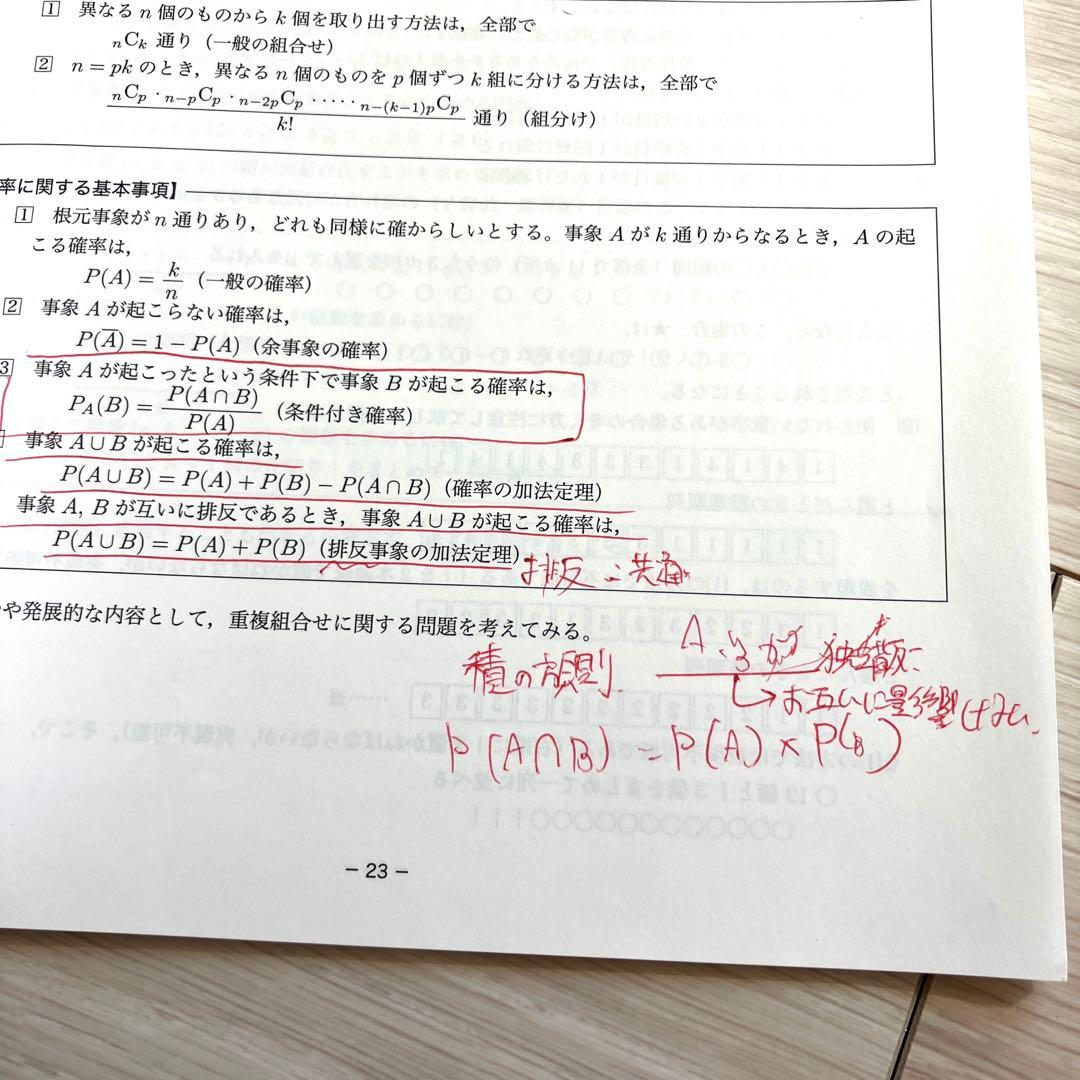 1 異なる n 個のものから k 個を取り出す方法は，全部で
nCk 通り（一般の組合せ）
2 n = pk のとき，異なる n 個のものを p 個ずつ k 組に分ける方法は，全部で
nCp · n−pCp · n−2pCp · ····· n−(k−1)pCp / k! 通り（組分け）
率に関する基本事項】
1 根元事象が n 通りあり，どれも同様に確からしいとする。事象 A が k 通りからなるとき，A の起
こる確率は，
P(A) = k/n （一般の確率）
2 事象 A が起こらない確率は，
P(A̅) = 1 − P(A)（余事象の確率）
3 事象 A が起こったという条件下で事象 B が起こる確率は，
PA(B) = P(A∩B)/P(A) （条件付き確率）
事象 A∪B が起こる確率は，
P(A∪B) = P(A) + P(B) − P(A∩B)（確率の加法定理）
事象 A, B が互いに排反であるとき，事象 A∪B が起こる確率は，
P(A∪B) = P(A) + P(B)（排反事象の加法定理）
排反
や発展的な内容として，重複組合せに関する問題を考えてみる。
積の法則
お互いに影響
P(A∩B) = P(A) × P(B)
− 23 −